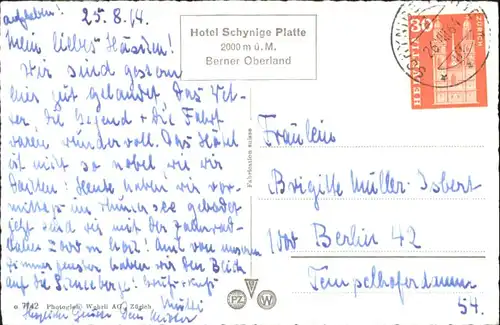 aufheben!
25.8.64
Hotel Schynige Platte
2000 m ü. M.
Berner Oberland
30
HELVETIA
ZÜRICH
Mein liebes Häschen!
Wir sind gestern
hier gut gelandet. Das Wet-
ter die Gegend + die Fahrt
waren wundervoll. Das Hotel
ist nicht so nobel wie wir
dachten! Heute haben wir vor-
mittags im Thuner See gebadet
jetzt sind wir mit der Zahnrad-
bahn 2000 m hoch! Auch von unserem
Zimmer haben wir den Blick
auf die
Mutti
Fräulein
Brigitte Müller-Isbert
1000 Berlin 42
Tempelhoferdamm
54.
Fabrication suisse
o 7742 Photogr(aph) Wehrli AG., Zürich
PZ W